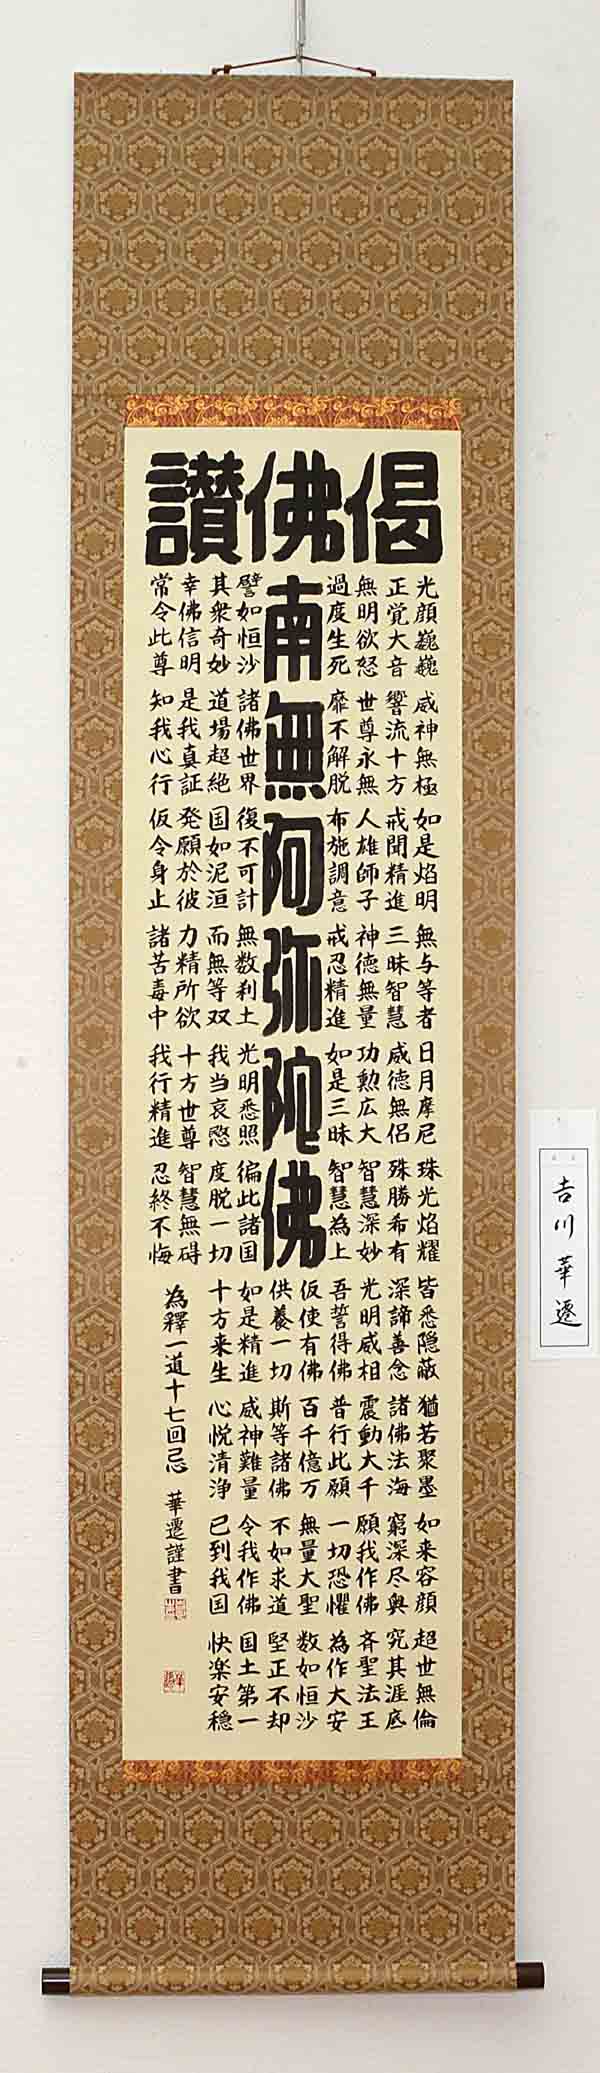 讃佛偈
南無阿弥陀佛
光顔巍巍 威神無極 如是焔明 無与等者 日月摩尼 珠光焔耀 皆悉隠蔽 猶若聚墨 如来容顔 超世無倫
正覚大音 響流十方 戒聞精進 三昧智慧 威徳無侶 殊勝希有 深諦善念 諸佛法海 窮深尽奥 究其涯底
無明欲怒 世尊永無 人雄師子 神徳無量 功勲広大 智慧深妙 光明威相 震動大千 願我作佛 斉聖法王
過度生死 靡不解脱 布施調意 戒忍精進 如是三昧 智慧為上 吾誓得佛 普行此願 一切恐懼 為作大安
仮使有佛 百千億万 無量大聖 数如恒沙
供養一切 斯等諸佛 不如求道 堅正不却
譬如恒沙 諸佛世界 復不可計 無数刹土 光明悉照 徧此諸国 如是精進 威神難量 令我作佛 国土第一
其衆奇妙 道場超絶 国如泥洹 而無等双 我当哀愍 度脱一切 十方来生 心悦清浄 已到我国 快楽安穏
幸佛信明 是我真証 発願於彼 力精所欲 十方世尊 智慧無碍
常令此尊 知我心行 仮令身止 諸苦毒中 我行精進 忍終不悔
為釋一道十七回忌 華遷謹書
吉川華遷